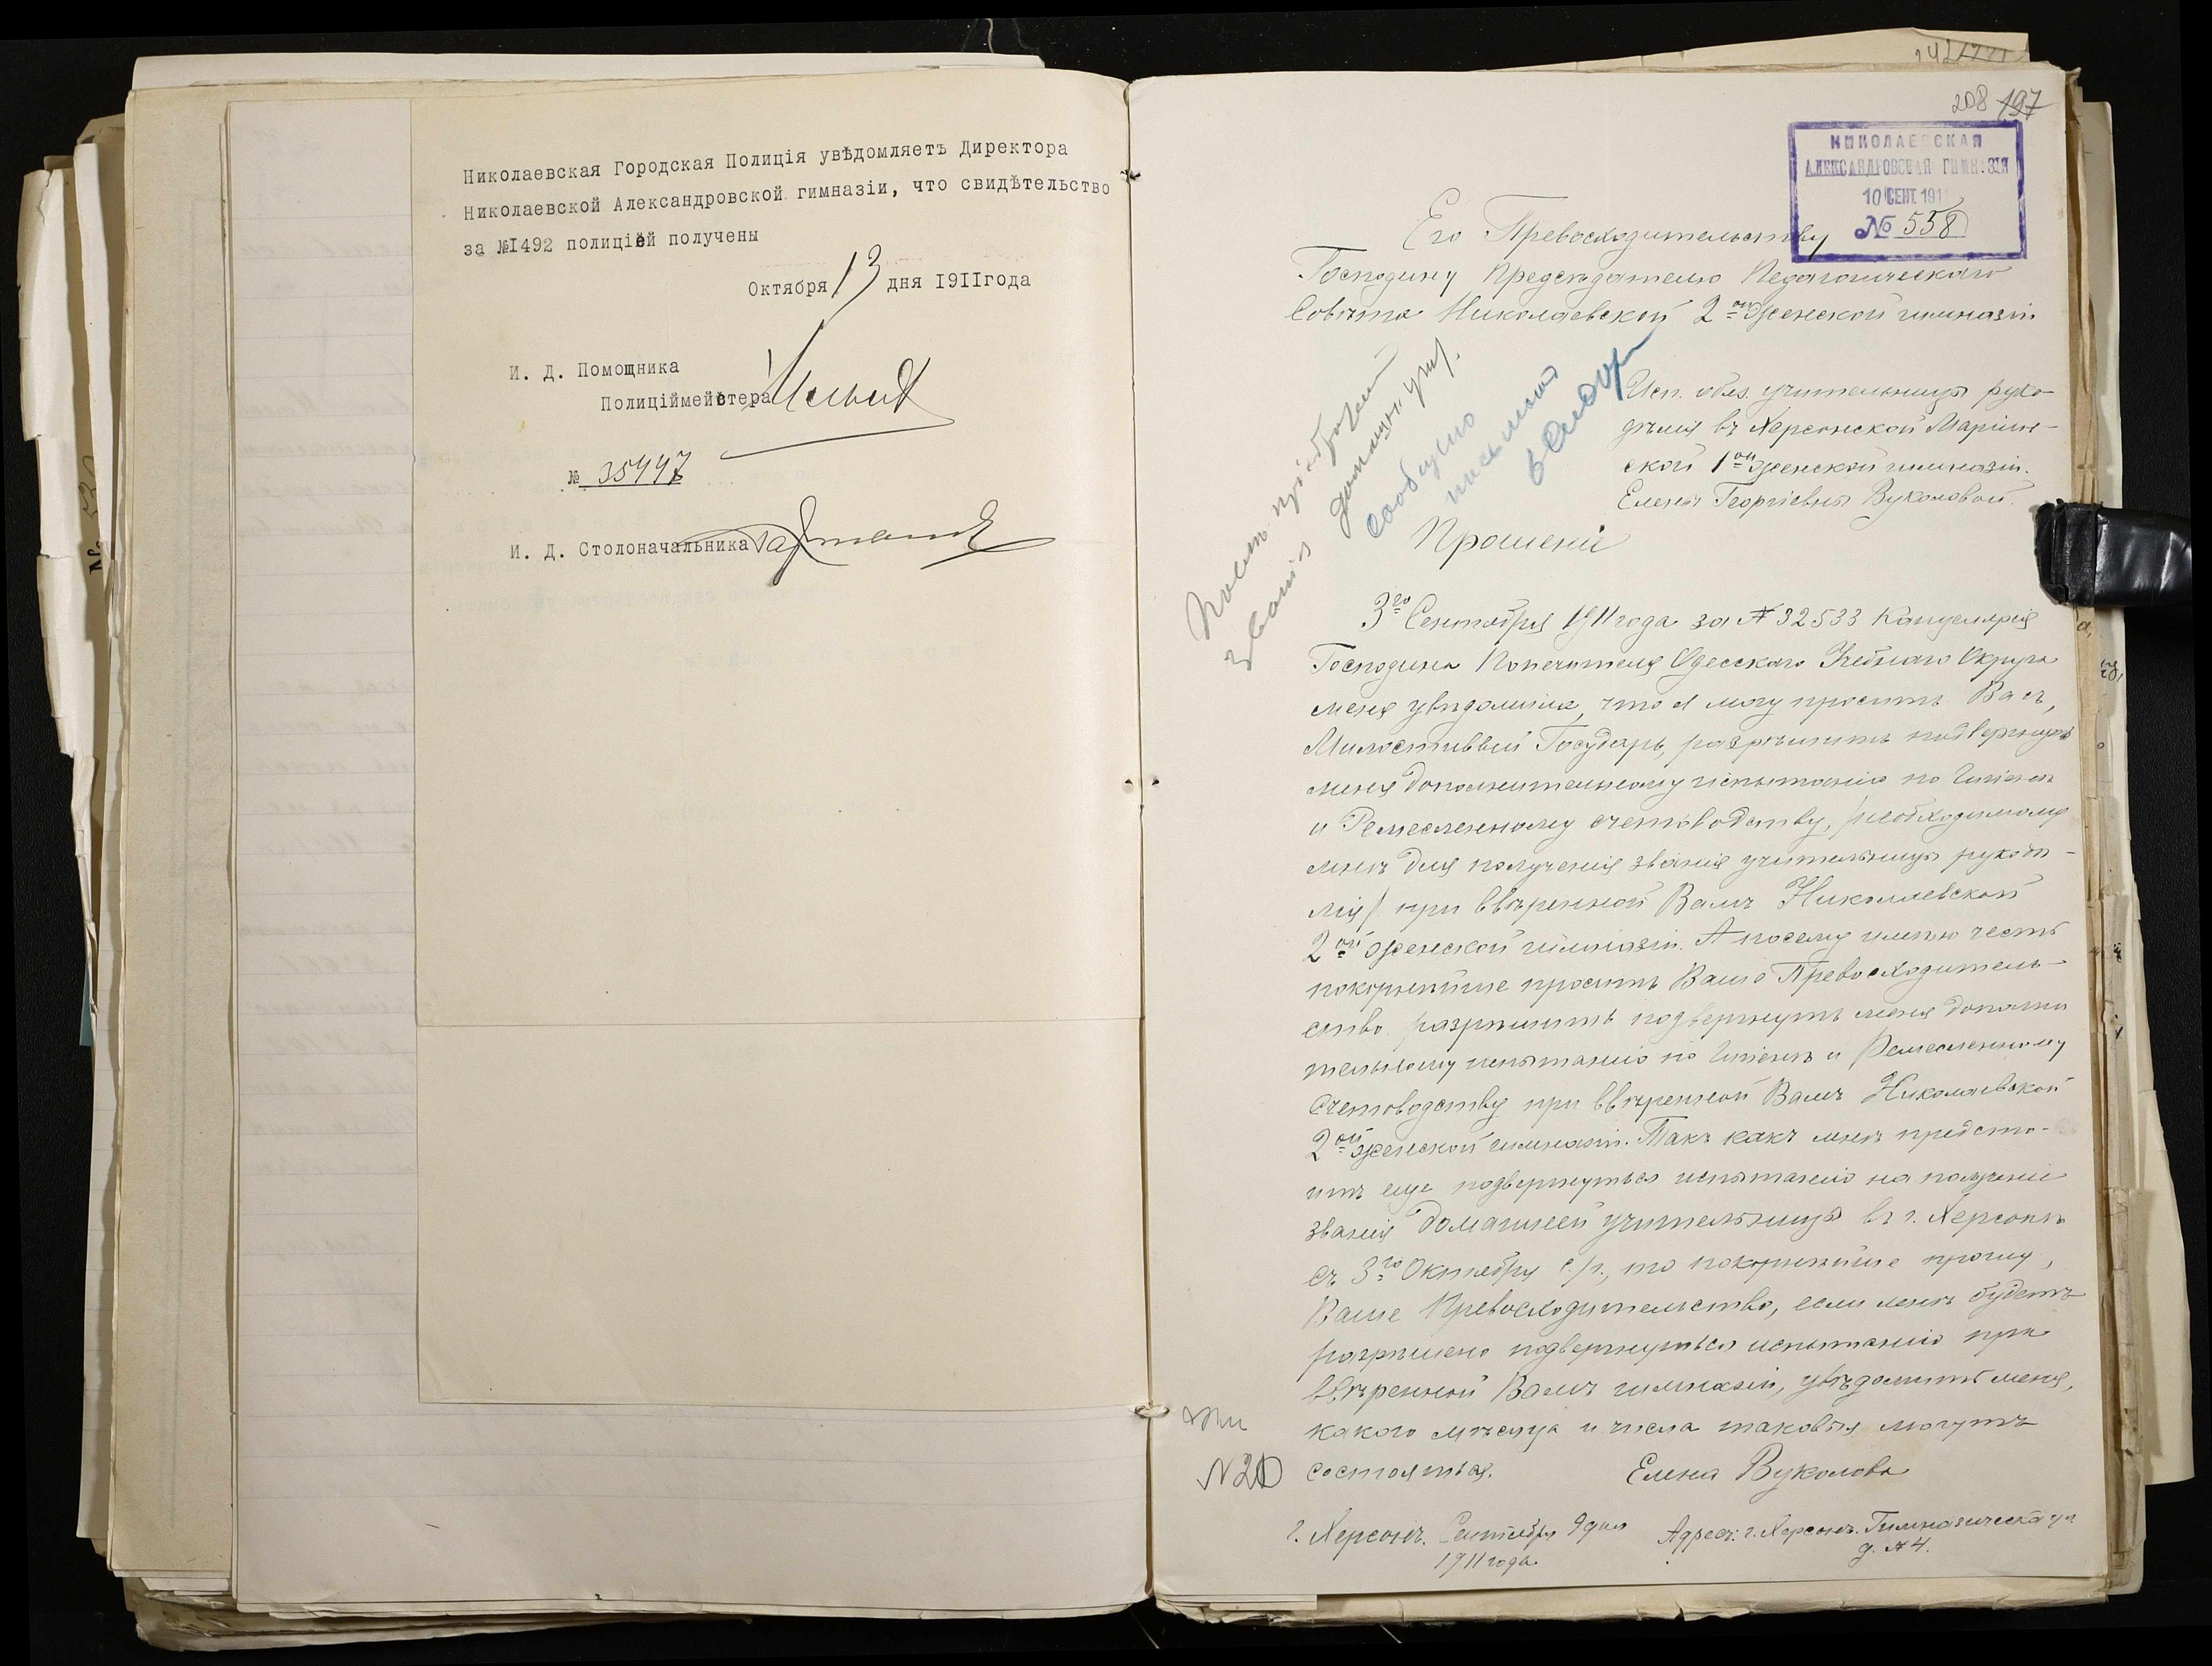 Николаевская Городская Полиція увѣдомляетъ Директора
Николаевской Александровской гимназіи, что свидѣтельство
за №I492 полиціей получены
Октября 13 дня I9IIгода
И. Д. Помощника
Полиціймейстера
№ 35447
И. Д. Столоначальника
208 197
НИКОЛАЕВСКАЯ
АЛЕКСАНДРОВСКАЯ ГИМНАЗІЯ
10 СЕНТ. 191
№ 558
Его Превосходительству
Господину Предсѣдателю Педагогическаго
Совѣта Николаевской 2ой женской гимназіи
Исп. обяз. учительницы руко-
дѣлія въ Херсонской Маріин-
ской 1ой женской гимназіи.
Елены Георгіевны Вуколовой.
Послѣ пріобрѣтенія
званія домашн. учит.
сообщено
письмомъ
Прошеніе
3го Сентября 1911 года за № 32533 Канцелярія
Господина Попечителя Одесскаго Учебнаго Округа
меня увѣдомила, что я могу просить Васъ,
Милостивый Государь, разрѣшить подвергнуть
меня дополнительному испытанію по Гигіенѣ
и Ремесленному счетоводству, /необходимому
мнѣ для получения званія учительницы рукодѣ-
лія/ при ввѣренной Вамъ Николаевской
2ой женской гимназіи. А посему имѣю честь
покорнѣйше просить Ваше Превосходитель-
ство разрѣшить подвергнуть меня дополни
тельному испытанію по Гигіенѣ и Ремесленному
Счетоводству при ввѣренной Вамъ Николаевской
2ой женской гимназіи. Такъ какъ мнѣ предсто-
итъ еще подвергнуться испытанію на полученіе
званія домашней учительницы въ г. Херсонѣ
съ 3го Октября с./г., то покорнѣйше прошу,
Ваше Превосходительство, если мнѣ будетъ
разрѣшено подвергнуться испытанію при
ввѣренной Вамъ гимназіи, увѣдомить меня,
какого мѣсяца и числа таковыя могутъ
состояться. Елена Вуколова
г. Херсонъ. Сентября 9 дня
1911 года.
Адресъ: г. Херсонъ. Гимназическая ул
д. № 4.